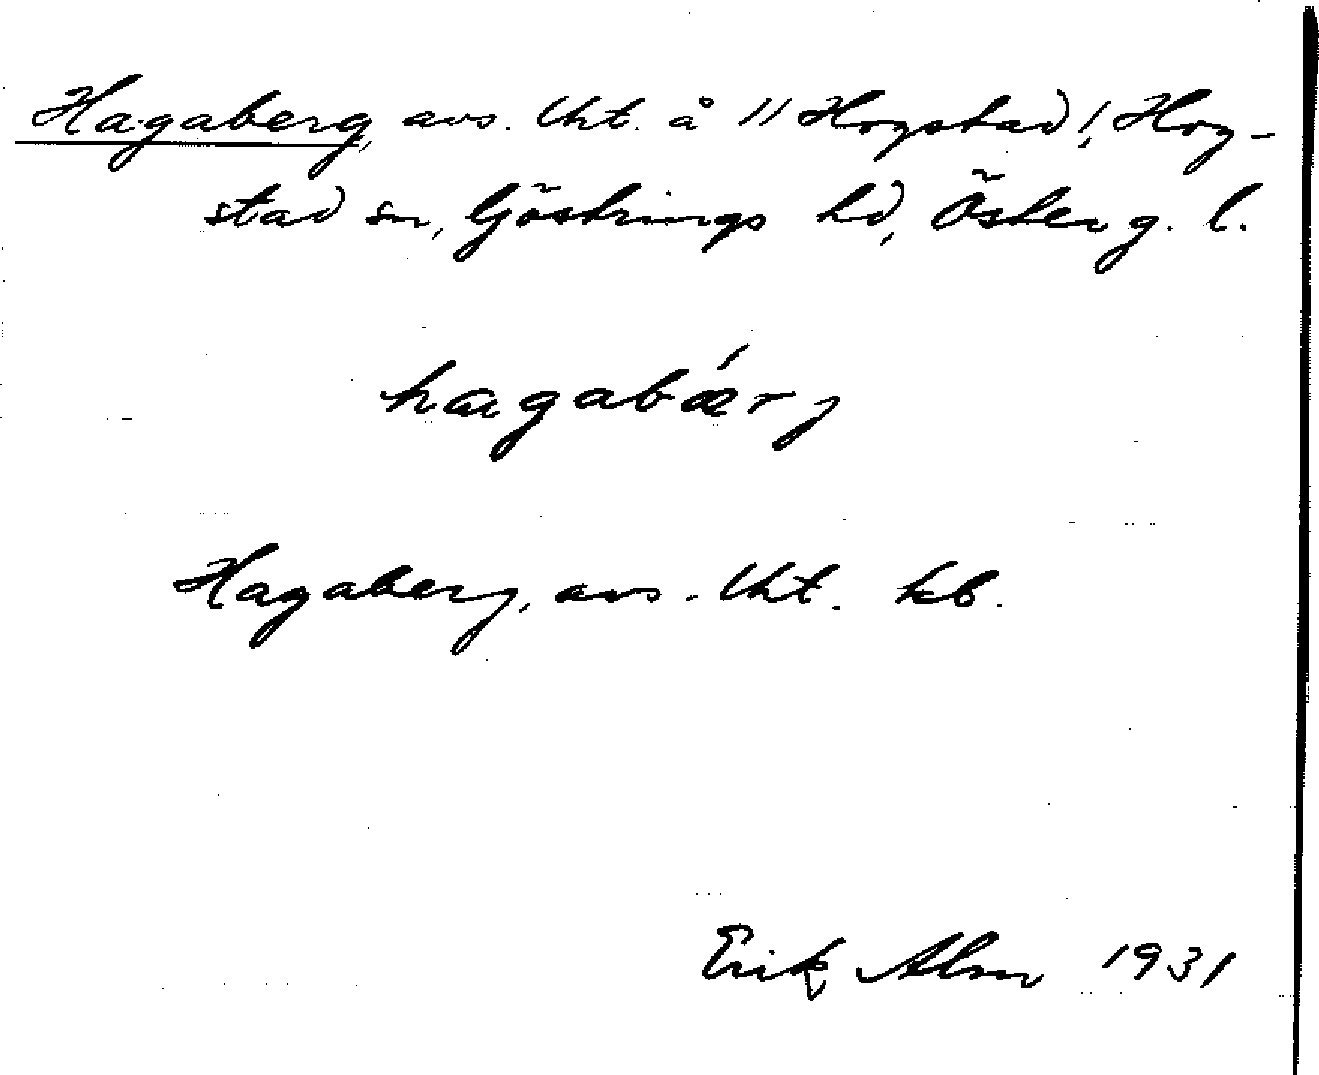 Hagaberg, avs. lht. å "Hogstad", Hog-
stad sn, Göstrings hd, Österg. l.
hagabǽrj
Hagaberg, avs. lht. kb.
Erik Alm 1931